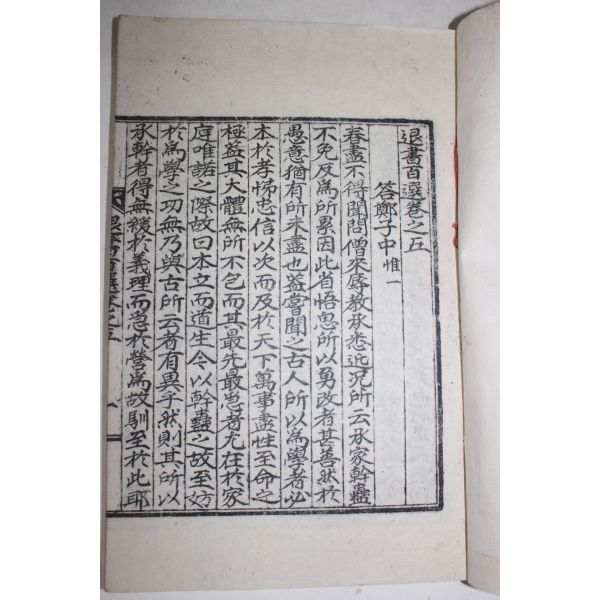 退書百選卷之五
答鄭子中惟一
春盡不得聞問僧來辱敎承悉近況所云承家幹蠱
不免反爲所累因此省悟思所以勇改者甚善然於
愚意猶有所未盡也蓋嘗聞之古人所以爲學者必
本於孝悌忠信以次而及於天下萬事盡性至命之
極蓋其大體無所不包而其最先最急者尤在於家
庭唯諾之際故曰本立而道生今以幹蠱之故至妨
於爲學之功無乃與古所云者有異乎然則其所以
承幹者得無緩於義理而急於營爲故馴至於此耶